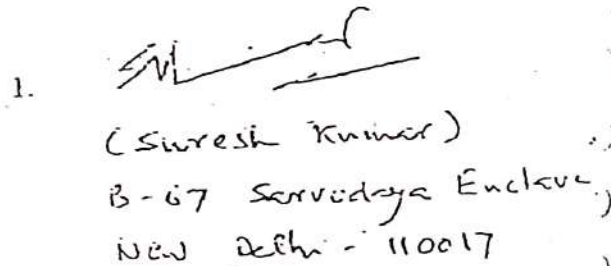 1.
(Suresh Kumar)
B-67 Sarvodaya Enclave,
New Delhi - 110017